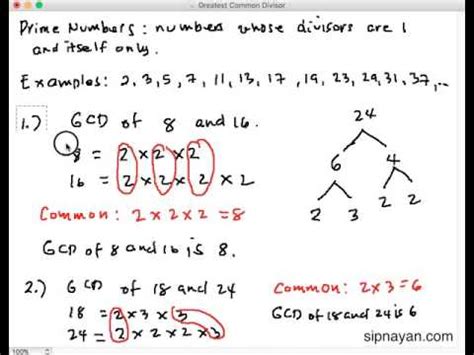 Greatest Common Divisor
Prime Numbers: numbers whose divisors are 1
and itself only.
Examples: 2, 3, 5, 7, 11, 13, 17, 19, 23, 29, 31, 37, ...
1.) GCD of 8 and 16.
8 = 2 × 2 × 2
16 = 2 × 2 × 2 × 2
Common: 2 × 2 × 2 = 8
GCD of 8 and 16 is 8.
24
6 4
2 3 2 2
2.) GCD of 18 and 24
18 = 2 × 3 × 3
24 = 2 × 2 × 2 × 3
Common: 2 × 3 = 6
GCD of 18 and 24 is 6
sipnayan.com
100%